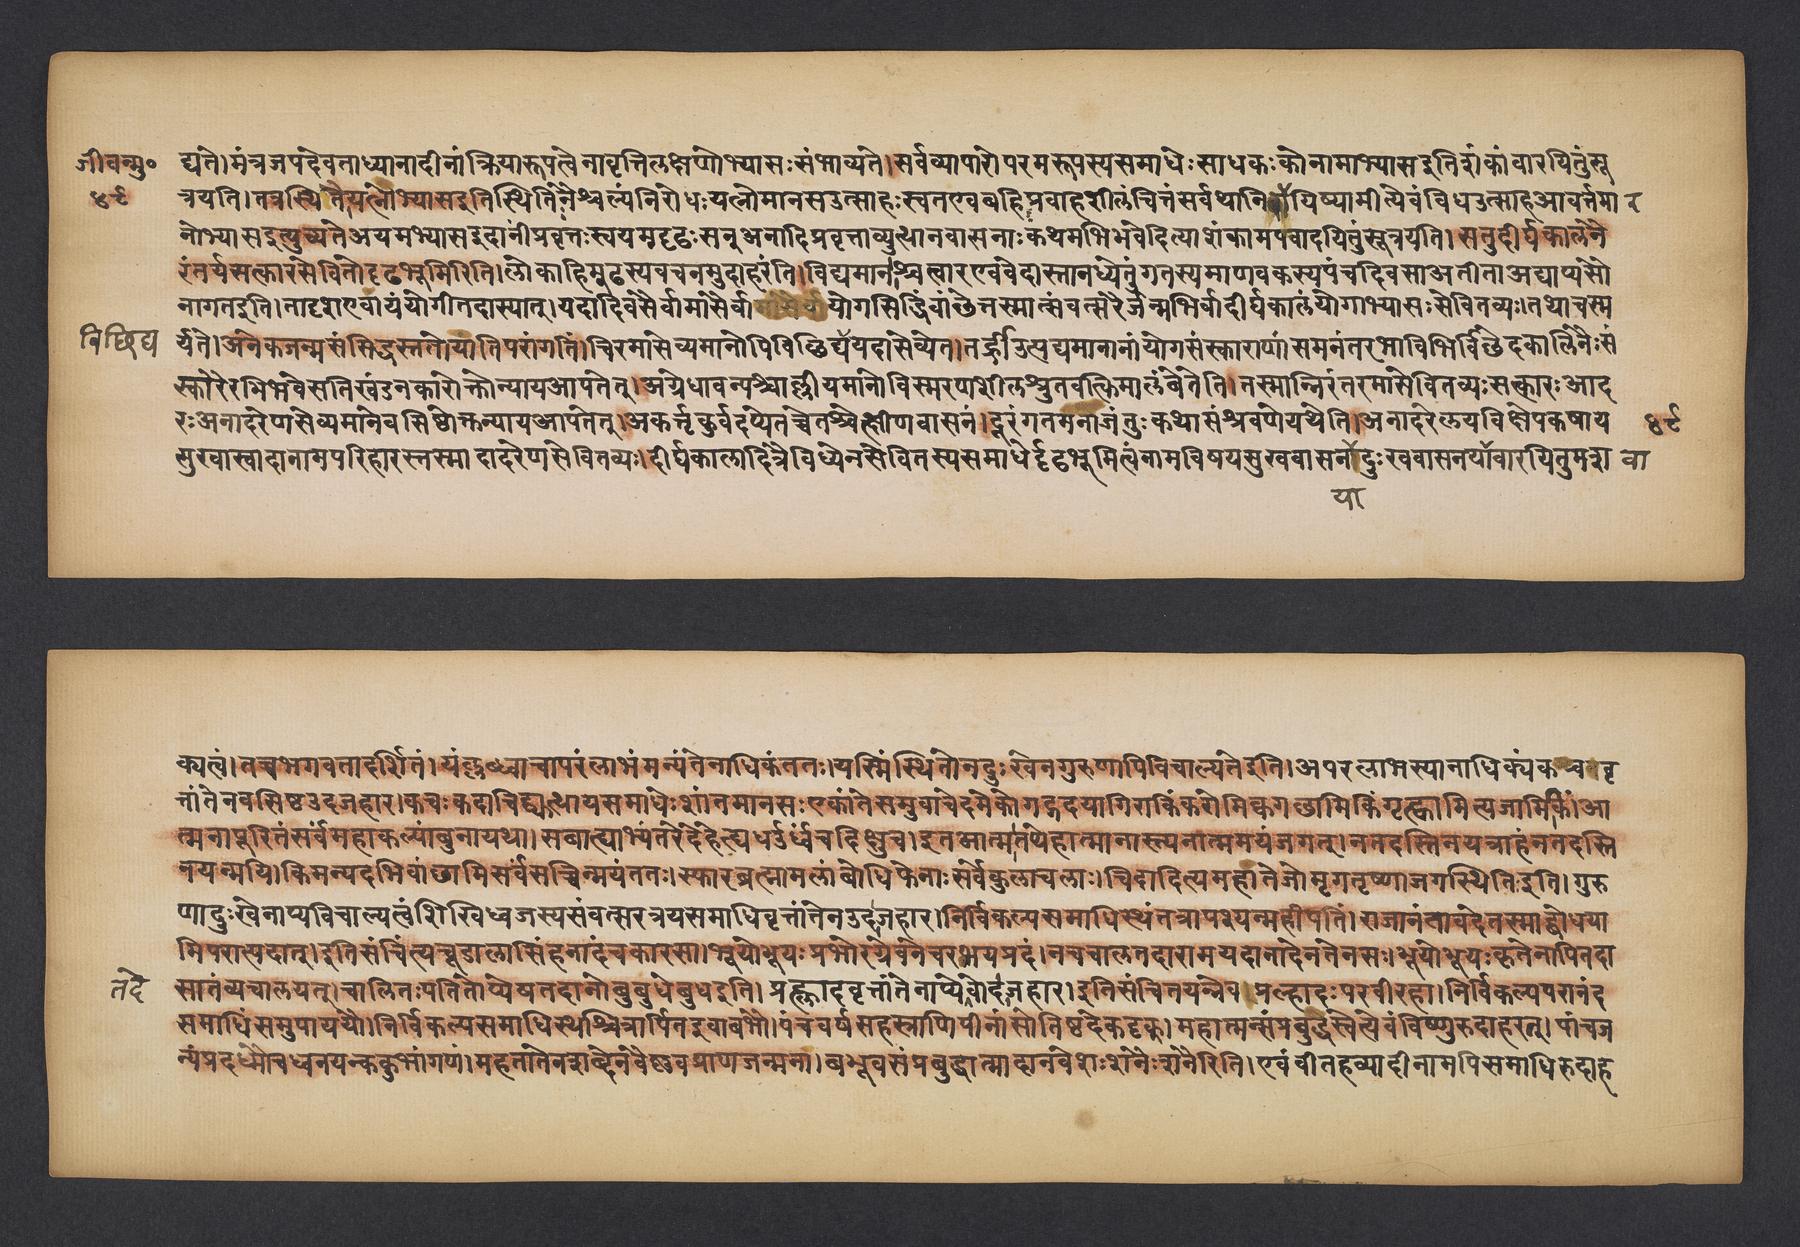 जीवन्मु॰
४९
द्यते।मंत्रजपदेवताध्यानादीनांक्रियारूपत्वेनावृत्तिलक्षणोभ्यासःसंभाव्यते।सर्वव्यापारोपरमरूपस्यसमाधेःसाधकःकोनामाभ्यासइतिशंकांवारयितुंसू
त्रयति।तत्रस्थितौयत्नोभ्यासइतिस्थितिंनैश्चल्यंनिरोधःयत्नोमानसउत्साहःस्वतएवबहिप्रवाहशीलंचित्तंसर्वथानि यिष्यामीत्येवंविधउत्साहआवर्त्तमा र
नोभ्यासइत्युच्यतेअयमभ्यासइदानींप्रवृत्तःस्वयमदृढःसनुअनादिप्रवृत्ताव्युत्थानवासनाःकथमभिभवेदित्याशंकामपवादयितुंसूत्रयति।सतुदीर्घकालनै
रंतर्यसत्कारसेवितोदृढभूमिरिति।लोकाहिमुढस्यवचनमुदाहरंति।विद्यमानाश्चत्वारएववेदास्तानध्येतुंगतस्यमाणवकस्यपंचदिवसाअतीताअद्याप्यसौ
नागतइति।तादृशएवायंयोगीतदास्यात्।यदादिवसैर्वामासैर्वा योगसिद्धिंवांछेत्तस्मात्संवत्सरैर्जन्मभिर्वादीर्घकालंयोगाभ्यासःसेवितव्यः।तथाचस्म
विच्छिद्य
र्यते।अनेकजन्मसंसिद्धस्ततोयातिपरांगतिं।चिरमासेव्यमानोपिविच्छिद्ययदासेव्येत।तर्हिउत्पद्यमानानांयोगसंस्काराणांसमनंतरभाविभिर्विछेदकालिनैःसं
स्कारैरभिभवेसतिखंडनकारोक्तोन्यायआपतेत्।अग्रेधावन्पश्चाल्लीयमानोविस्मरणशीलश्रुतवत्किमालंबेतेति।तस्मान्निरंतरमासेवितव्यःसत्कारःआद
रःअनादरेणसेव्यमानेवसिष्ठोक्तन्यायआपतेत्।अकर्त्तृकुर्वदप्येतच्चेतश्चेत्क्षीणवासनं।दूरंगतमनाजंतुःकथासंश्रवणेयथेति।अनादरेलयविक्षेपकषाय ४९
सुखास्वादानामपरिहारस्तस्मादादरेणसेवितव्यः।दीर्घकालादित्रैविध्येनसेवितस्यसमाधेर्दृढभूमित्वंनामविषयसुखवासनादुःखवासनयावारयितुमश वा
या
क्यत्वं।तच्चभगवतादर्शितं।यंलब्ध्वाचापरंलाभंमन्यतेनाधिकंततः।यस्मिंस्थितोनदुःखेनगुरुणापिविचाल्यतेइति।अपरलाभस्यानाधिक्यंकचवृ
त्तांतेनवसिष्ठउदजहार।कचःकदाचिदुत्थायसमाधेःशांतमानसःएकांतेसमुवाचेदमेकोगद्गदयागिराकिंकरोमिक्वगछामिकिंगृह्णामित्यजामिकिं।आ
त्मनापूरितंसर्वंमहाकल्पांबुनायथा।सबाह्याभ्यंतरेदेहेह्यधर्ऊर्ध्वंचदिक्षुच।इतआत्मातथेहात्मानास्त्यनात्ममयंजगत्।नतदस्तिनयत्राहंनतदस्ति
नयन्मयि।किमन्यदभिवांछामिसर्वंसच्चिन्मयंततः।स्फारब्रह्मामलांबोधिफेनाःसर्वेकुलाचलाः।चिदादित्यमहातेजोमृगतृष्णाजगस्थितिःइति।गुरु
णादुःखेनाप्यविचाल्यत्वंशिखिध्वजस्यसंवत्सरत्रयसमाधिवृत्तांतेनउदाजहार।निर्विकल्पसमाधिस्थंतत्रापश्यन्महीपतिं।राजानंतावदेतस्माद्बोधया
मिपरात्पदात्।इतिसंचिंत्यचूडालासिंहनादंचकारसा।भूयोभूयःप्रभोरग्रेवनेचरभयप्रदं।नचचालतदारामयदानादेनतेनसः।भूयोभूयःकृतेनापितदा
तदे
सातंव्यचालयत्।चालितःपतितोप्येषतदानोबुबुधेबुधइति।प्रह्लादवृत्तांतेनाप्येवोदाजहार।इतिसंचिंतयन्नैव।प्रल्हादःपरवीरहा।निर्विकल्पपरानंद
समाधिंसमुपाययौ।निर्विकल्पसमाधिस्थश्चित्रार्पितइवाबभौ।पंचवर्षसहस्त्राणिपीनांसोतिष्ठदेकदृक्।महात्मन्संप्रबुद्धस्वेत्येवंविष्णुरुदाहरत्।पांचज
न्यंप्रदध्मौचध्वनयन्ककुभांगणं।महतातेनशब्देनवैष्णवप्राणजन्मना।बभूवसंप्रबुद्धात्मादानवेशःशनैःशनैरिति।एवंवीतहव्यादीनामपिसमाधिरुदाह